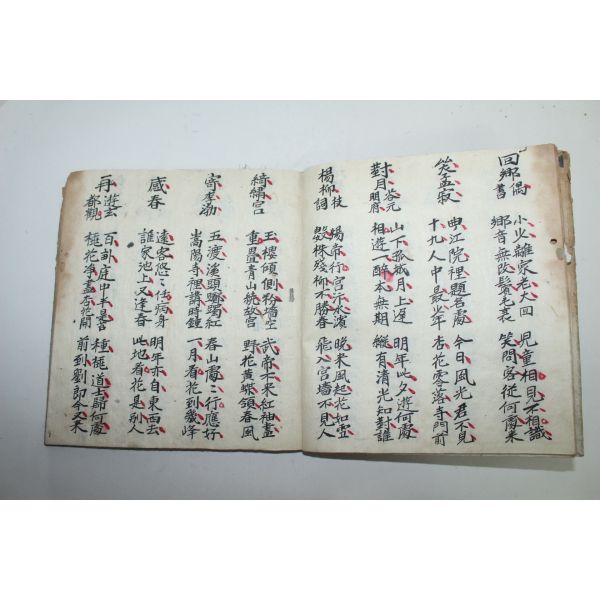 回鄕偶書
小少離家老大回
鄕音無改鬢毛衰
兒童相見不相識
笑問客從何處來
哭孟寂
申江院裡題名處
十九人中最少年
今日風光君不見
杏花零落寺門前
對月答元明府
山下孤城月上遲
相遊一醉本無期
明年此夕遊何處
縱有淸光知對誰
楊柳枝詞
煬帝行宮汴水濱
數株殘柳不勝春
晩來風起花如雪
飛入宮墻不見人
綺繡宮
玉樓傾側粉墻空
重疊青山繞故宮
武帝不來紅袖盡
野花黃蝶領春風
寄李渤
五渡溪頭躑躅紅
嵩陽寺裡講時鍾
春山處〻行應好
一月看花到幾峰
感春
遠客悠〻任病身
誰家池上又逢春
明年亦自東西去
此地看花是別人
再遊玄都觀
百畝庭中半是苔
桃花淨盡杏花開
種桃道士歸何處
前到劉郎今又來